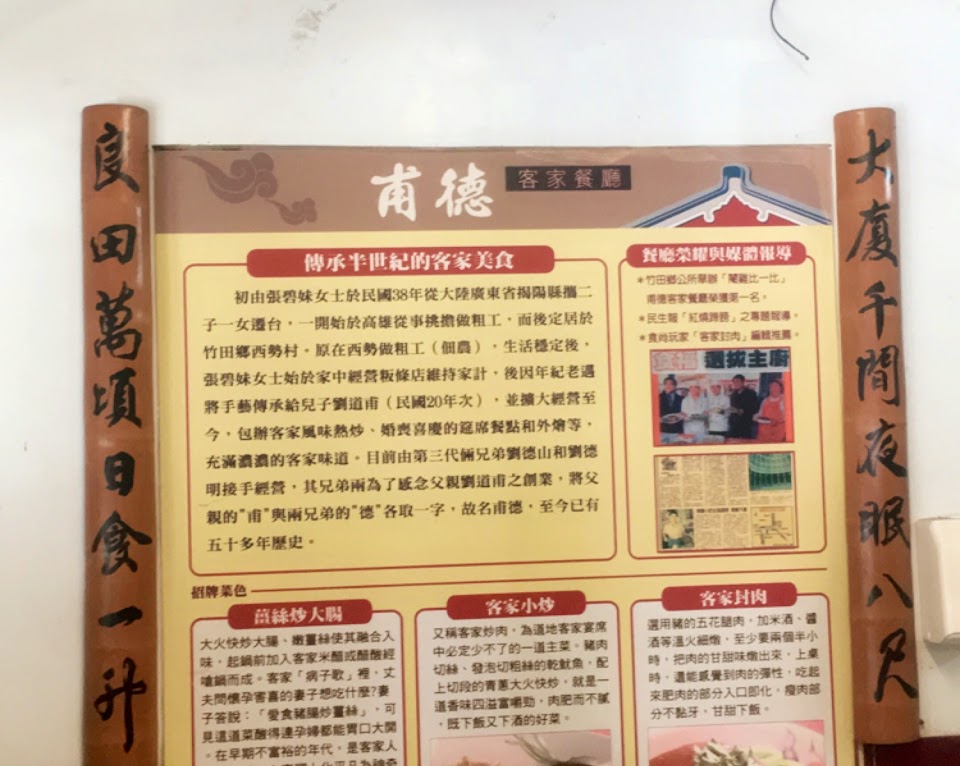 大廈千間夜眠八尺
良田萬頃日食一升
甫德
客家餐廳
傳承半世紀的客家美食
初由張碧妹女士於民國38年從大陸廣東省揭陽縣攜二
子一女遷台，一開始於高雄從事挑擔做粗工，而後定居於
竹田鄉西勢村。原在西勢做粗工（佃農），生活穩定後，
張碧妹女士始於家中經營粄條店維持家計，後因年紀老邁
將手藝傳承給兒子劉道甫（民國20年次），並擴大經營至
今，包辦客家風味熱炒、婚喪喜慶的筵席餐點和外燴等，
充滿濃濃的客家味道。目前由第三代倆兄弟劉德山和劉德
明接手經營，其兄弟兩為了感念父親劉道甫之創業，將父
親的"甫"與兩兄弟的"德"各取一字，故名甫德，至今已有
五十多年歷史。
餐廳榮耀與媒體報導
＊竹田鄉公所舉辦「鬧雞比一比」
甫德客家餐廳榮獲第一名。
＊民生報「紅燒蹄膀」之專題報導。
＊食尚玩家「客家封肉」編輯推薦。
選拔主廚
招牌菜色
薑絲炒大腸
大火快炒大腸、嫩薑絲使其融合入
味，起鍋前加入客家米醋或醋酸經
嗆鍋而成。客家「病子歌」裡，丈
夫問懷孕害喜的妻子想吃什麼?妻
子答說：「愛食豬腸炒薑絲」，可
見這道菜酸得連孕婦都能胃口大開
。在早期不富裕的年代，是客家人
客家小炒
又稱客家炒肉，為道地客家宴席
中必定少不了的一道主菜。豬肉
切絲、發泡切粗絲的乾魷魚，配
上切段的青蔥大火快炒，就是一
道香味四溢富嚼勁，肉肥而不膩
，既下飯又下酒的好菜。
客家封肉
選用豬的五花腿肉，加米酒、醬
酒等溫火細燉，至少要兩個半小
時，把肉的甘甜味燉出來，上桌
時，還能感覺到肉的彈性，吃起
來肥肉的部分入口即化，瘦肉部
分不黏牙，甘甜下飯。